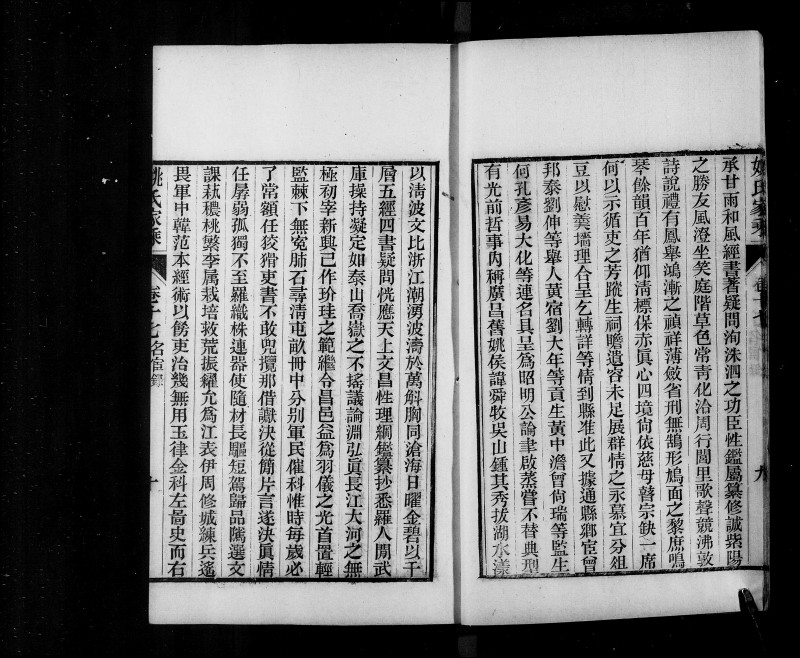 姚氏家乘 卷十七 九
承甘雨和風經書著疑問洵洙泗之功臣性鑑屬纂修誠紫陽
之勝友風澄坐笑庭階草色常青化洽周行閭里歌聲競沸敦
詩說禮有鳳舉鴻漸之禎祥薄斂省刑無鵠形鳩面之黎庶鳴
琴餘韻百年猶仰清標保赤眞心四境尙依慈母瞽宗缺一席
何以示循吏之芳蹤生祠瞻遺容未足展群情之永慕宜分俎
豆以慰羹墻理合呈乞轉詳等情到縣准此又據通縣鄉宦曾
邦泰劉伸等舉人黃宿劉大年等貢生黃中澹曾尙瑞等監生
何孔彥易大化等連名具呈爲昭明公論聿啟蒸嘗不替典型
有光前哲事內稱廣昌舊姚侯諱舜牧吳山鍾其秀拔湖水漾
以淸波文比浙江潮湧波濤於萬斛胸同滄海日曜金碧以千
層五經四書疑問恍應天上文昌性理綱鑑纂抄悉羅人間武
庫操持凝定如泰山喬嶽之不搖議論淵弘眞長江大河之無
極初宰新興已作玠珪之範繼令昌邑益爲羽儀之光首置輕
監棘下無寃肺石尋清屯畝冊中分别軍民催科惟時每歲必
了常額任狡猾吏書不敢兜攬那借讞決從簡片言遂決眞情
任孱弱孤獨不至羅織株連器使隨材長驅短駕歸品隲選文
課萟穠桃繁李属栽培救荒振耀允爲江表伊周修城練兵遙
畏軍中韓范本經術以餝吏治幾無用玉律金科左啚史而右
姚氏家乘 卷十七名宦錄 十